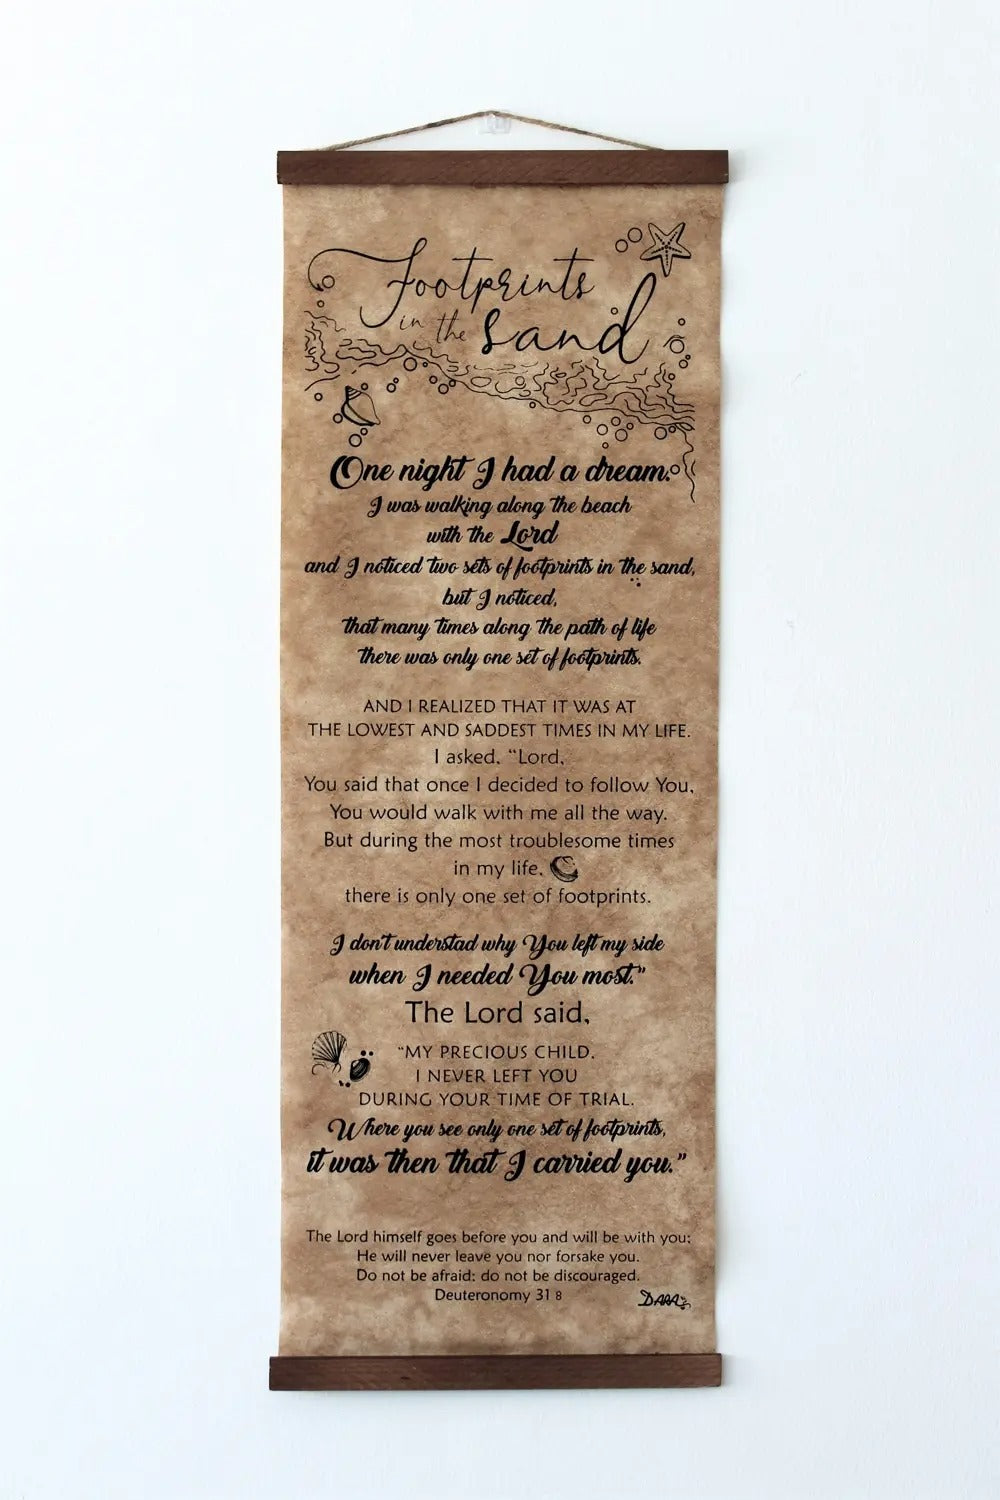 Footprints
in the sand
One night I had a dream.
I was walking along the beach
with the Lord
and I noticed two sets of footprints in the sand,
but I noticed,
that many times along the path of life
there was only one set of footprints.
AND I REALIZED THAT IT WAS AT
THE LOWEST AND SADDEST TIMES IN MY LIFE.
I asked, “Lord,
You said that once I decided to follow You,
You would walk with me all the way.
But during the most troublesome times
in my life,
there is only one set of footprints.
I don't understad why You left my side
when I needed You most.”
The Lord said,
“MY PRECIOUS CHILD,
I NEVER LEFT YOU
DURING YOUR TIME OF TRIAL.
Where you see only one set of footprints,
it was then that I carried you.”
The Lord himself goes before you and will be with you;
He will never leave you nor forsake you.
Do not be afraid; do not be discouraged.
Deuteronomy 31 8
DARA